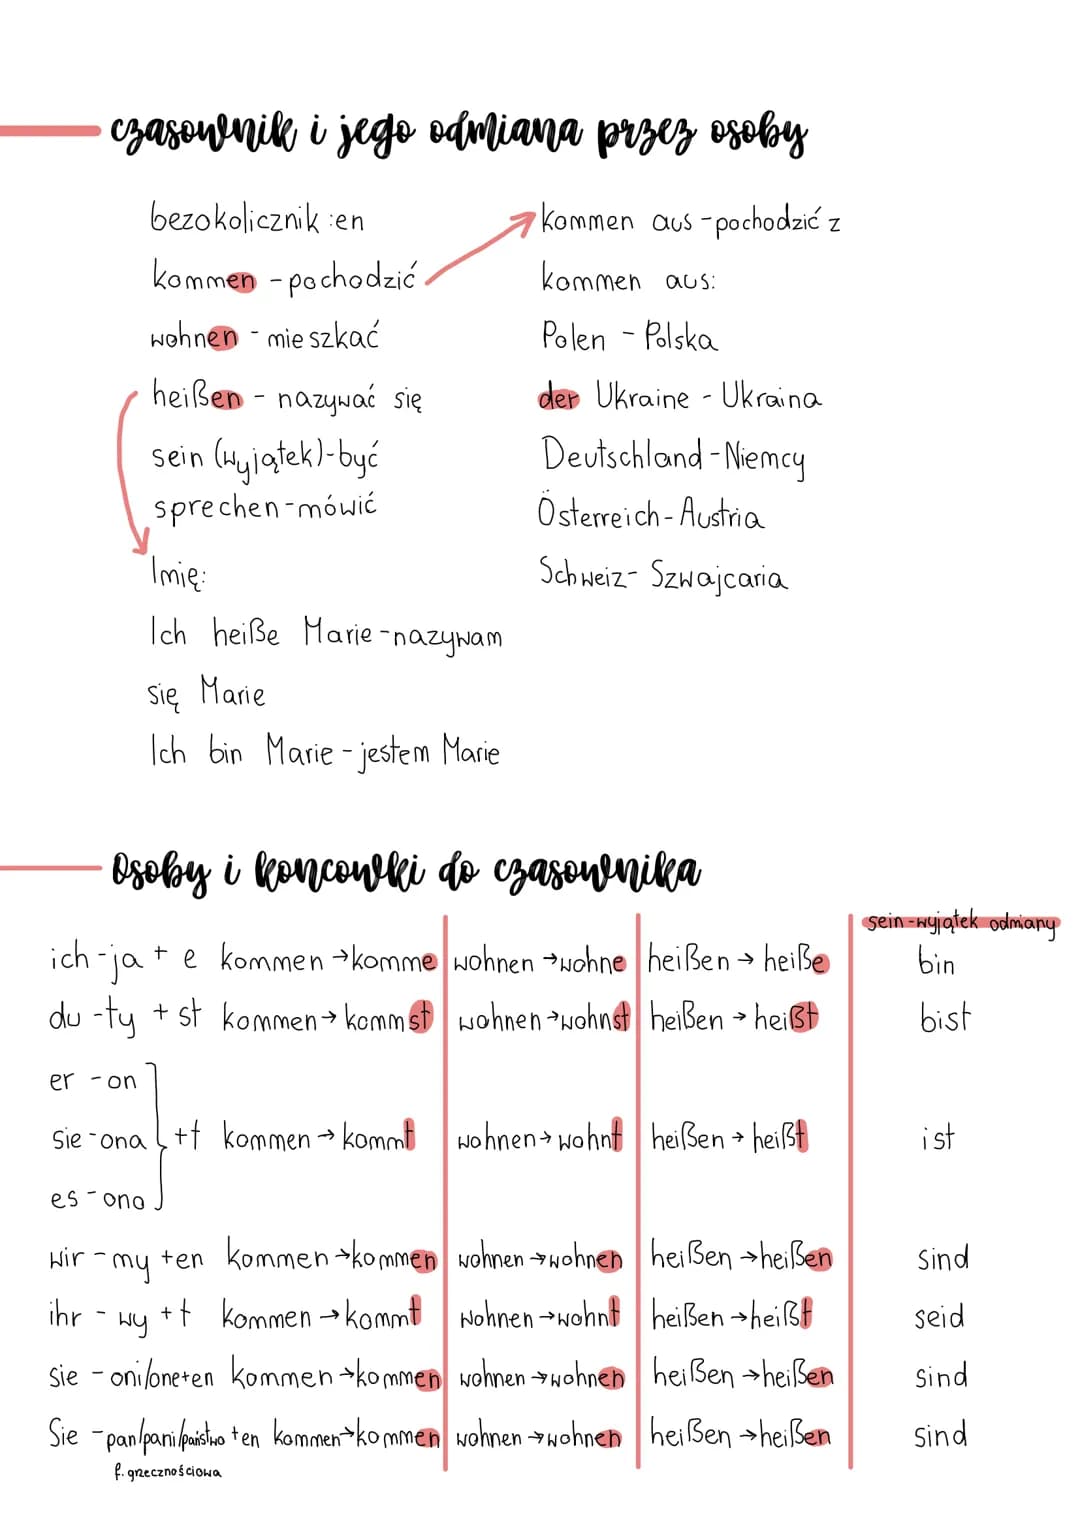 czasownik i jego odmiana przez osoby
bezokolicznik :en
kommen - pochodzić
wohnen - mieszkać
heißen - nazywać się
sein (wyjątek)-być
sprechen-mówić
Imię:
Ich heiße Marie-nazywam
się Marie
Ich bin Marie-jestem Marie
kommen aus -pochodzić z
kommen aus:
Polen - Polska
der Ukraine - Ukraina
Deutschland-Niemcy
Österreich-Austria
Schweiz- Szwajcaria
Osoby i koncowki do czasownika
sein-wyjątek odmiany
ich-ja + e kommen→komme wohnen→wohne heißen→heiße bin
du -ty + st kommen→kommst wohnen→wohnst heißen→heißt bist
er -on
sie-ona +t kommen→kommt wohnen→wohnt heißen→heißt ist
es-ono
wir-my +en kommen→kommen wohnen→wohnen heißen→heißen sind
ihr - wy +t kommen→kommt wohnen→wohnt heißen→heißt seid
sie - oni/one+en kommen→kommen wohnen→wohnen heißen→heißen sind
Sie -pan/pani/państwo +en kommen→kommen wohnen→wohnen heißen→heißen sind
f. grzecznościowa